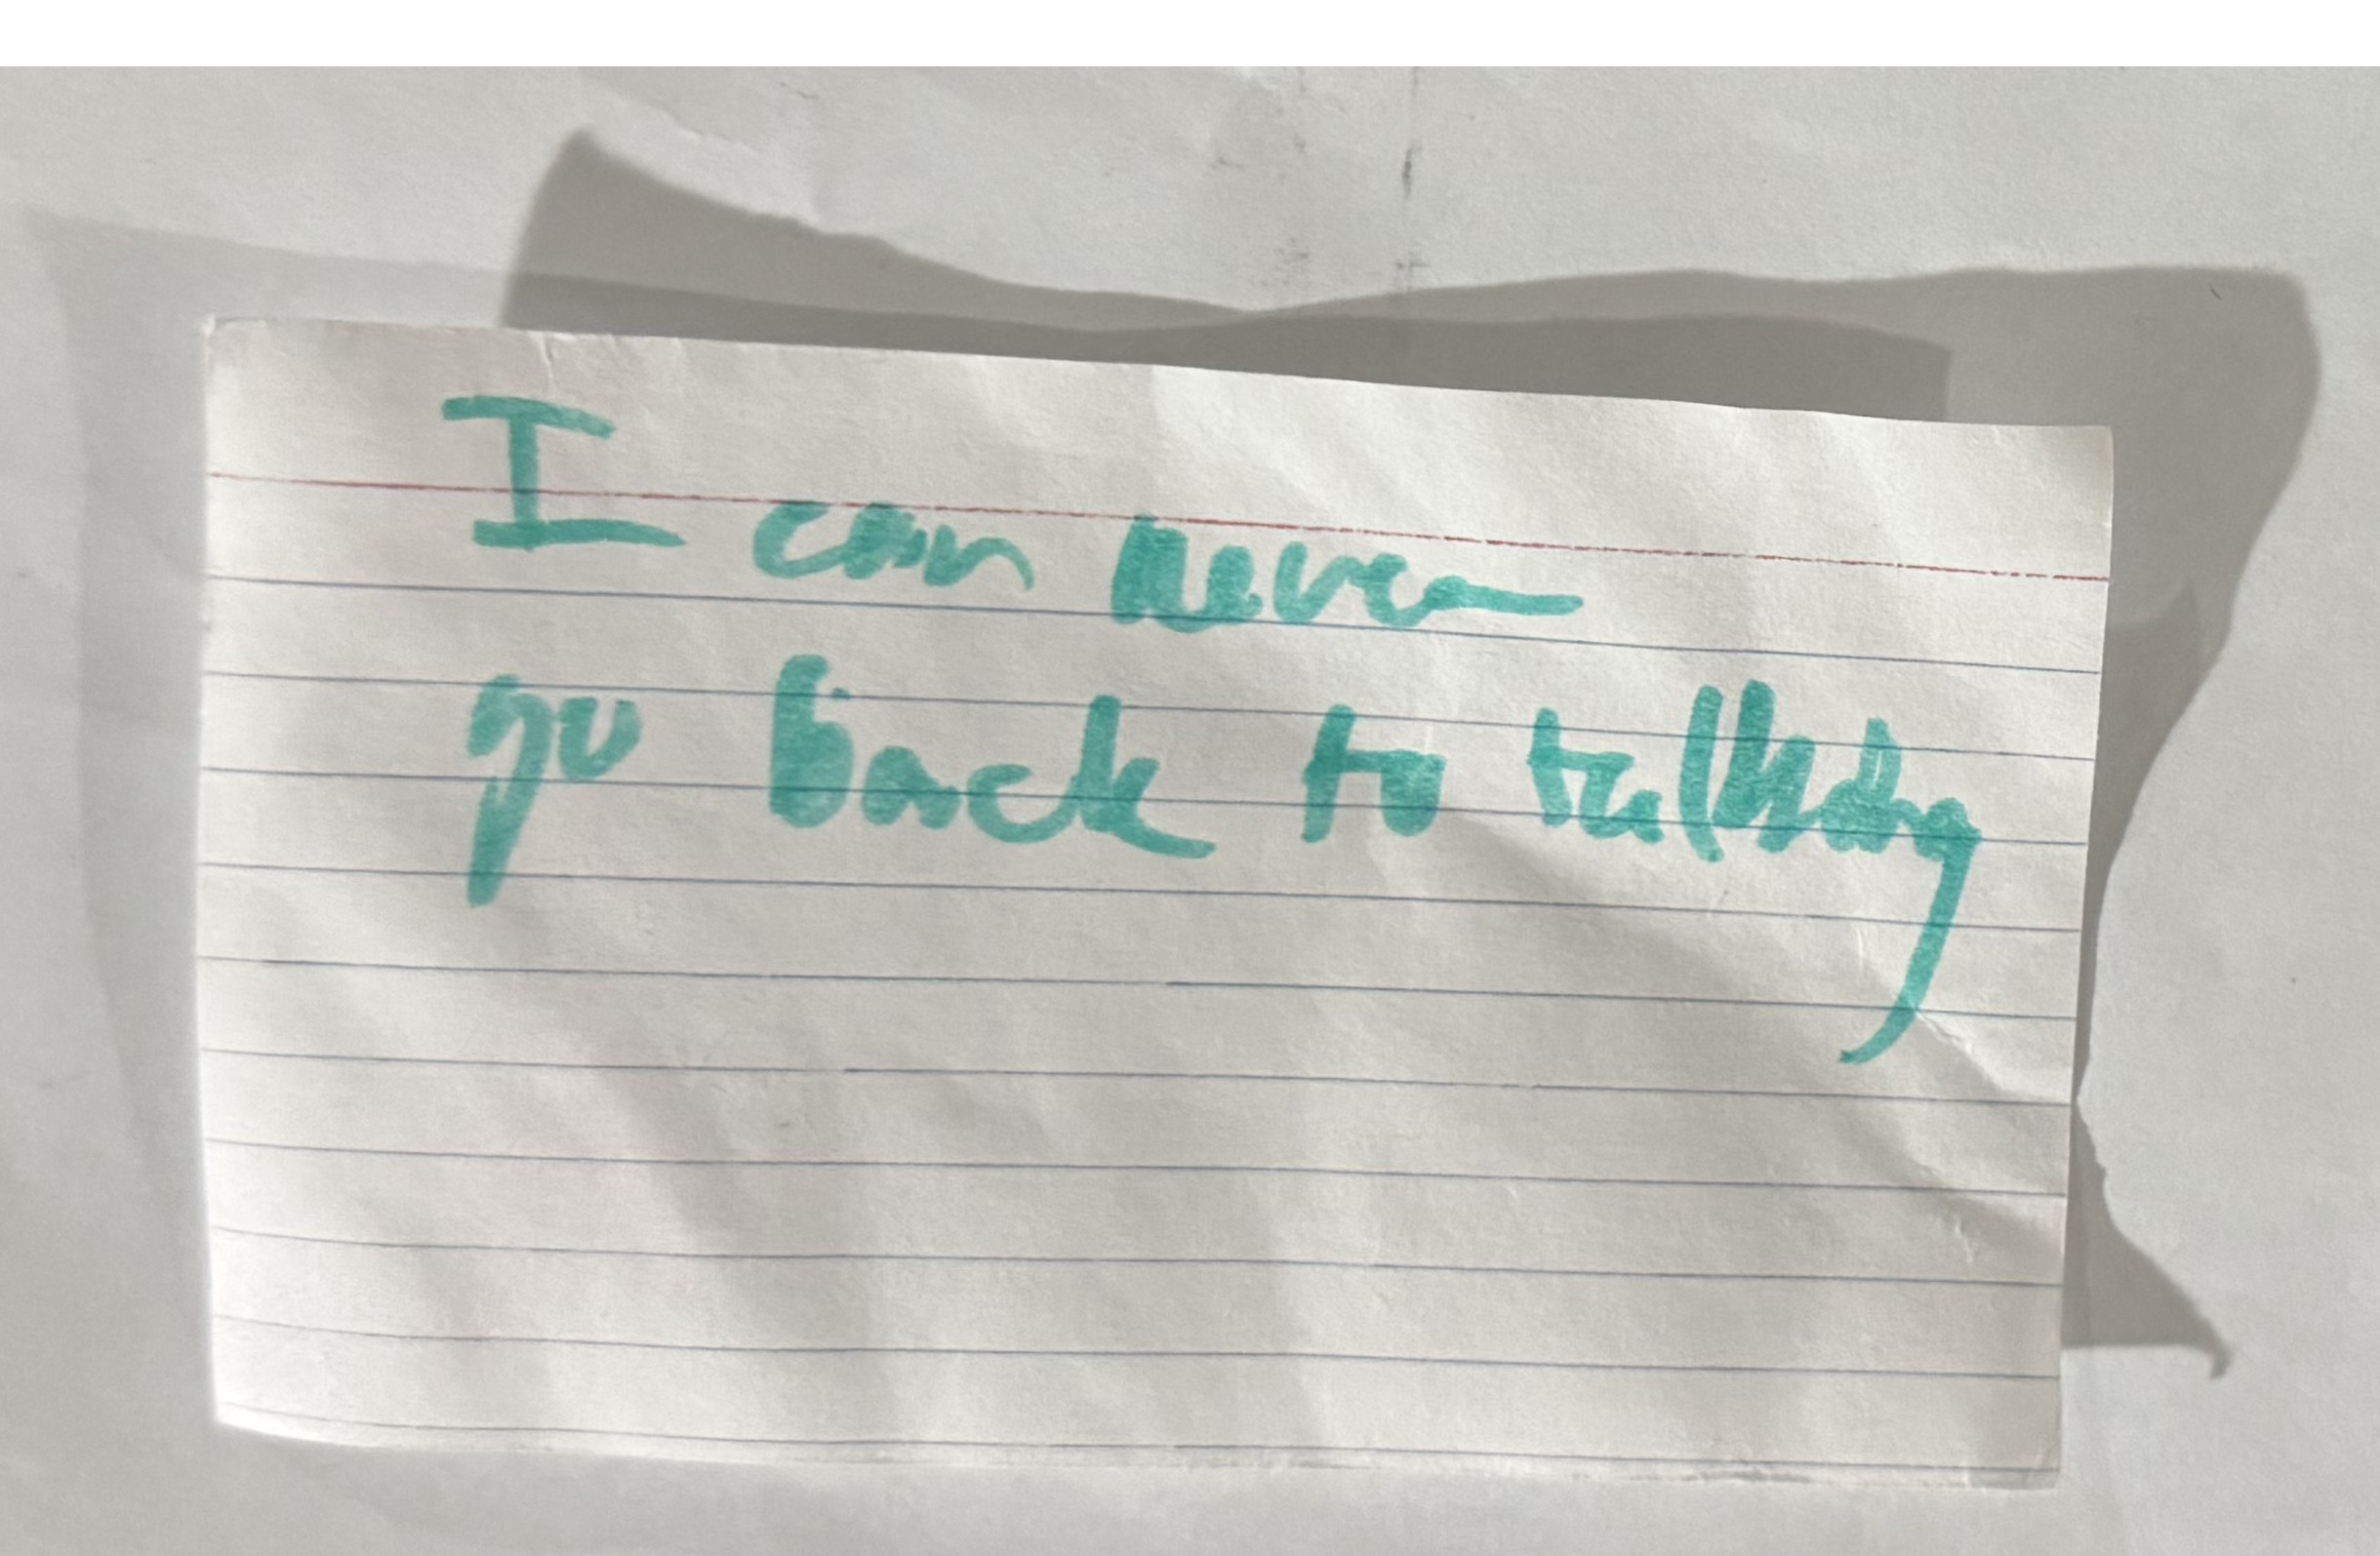 I can never
go back to talking